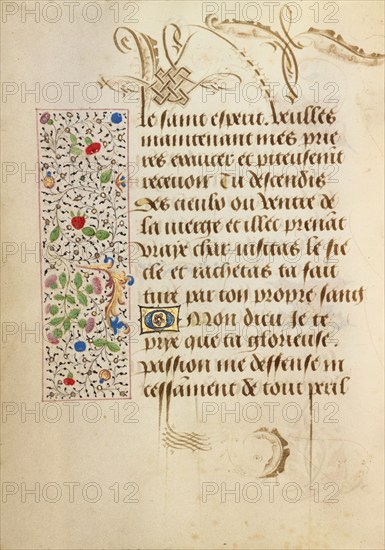 le saint esperit. Veulles
maintenant mes prie
res exaucer et piteusemt
recevoir Tu descendis
des cieulx ou ventre de
la vierge et illec prenāt
vraye char visitas le sie
cle et rachetas ta fait
ture par ton propre sang
O Mon dieu je te
prye que ta glorieuse
passion me deffense in
cessāment de tout peril